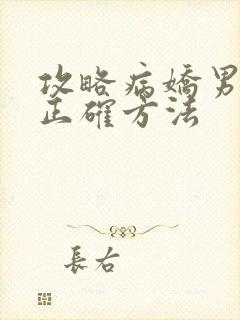 攻略病嬌男
正確方法
長右